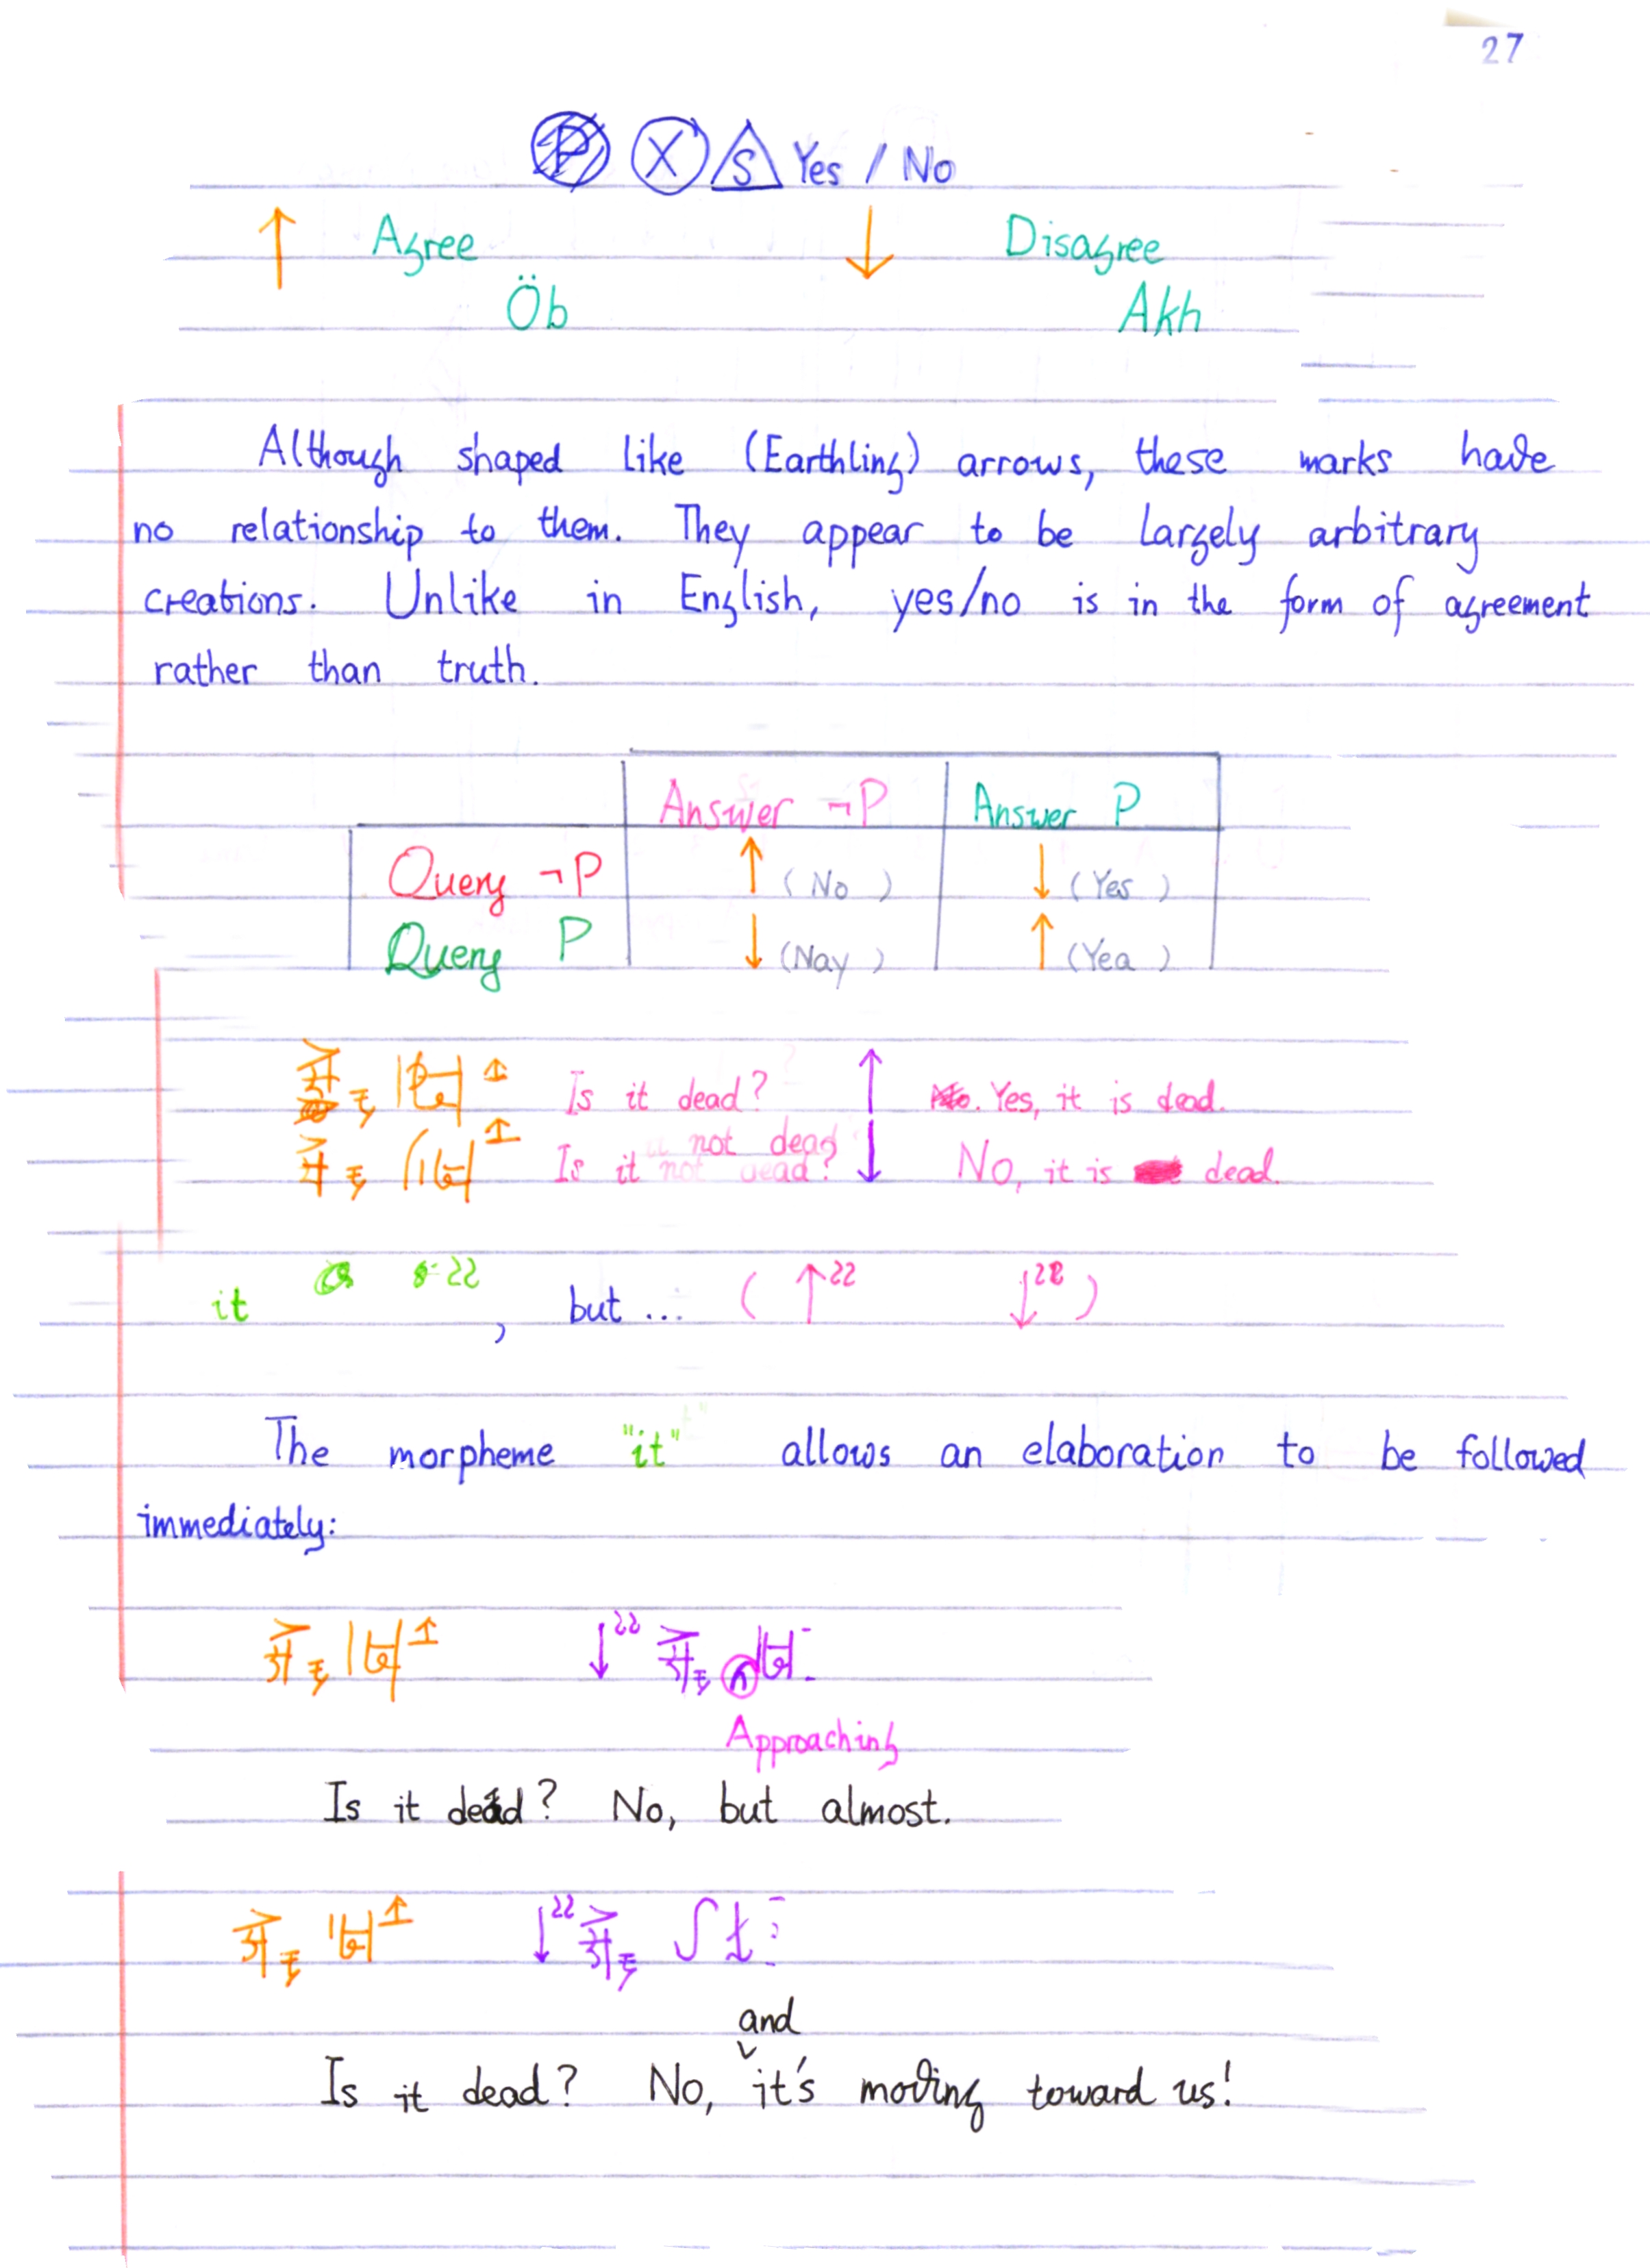 27
P X S Yes / No
↑ Agree ↓ Disagree
Öb Akh
Although shaped like (Earthling) arrows, these marks have
no relationship to them. They appear to be largely arbitrary
creations. Unlike in English, yes/no is in the form of agreement
rather than truth.
Answer ¬P Answer P
Query ¬P ↑ (No) ↓ (Yes)
Query P ↓ (Nay) ↑ (Yea)
Is it dead? ↑ Yes, it is dead.
Is it not dead? ↓ No, it is dead.
it 22, but ... ( ↑22 ↓22 )
The morpheme "it" allows an elaboration to be followed
immediately:
↓22
Approaching
Is it dead? No, but almost.
↓22
and
Is it dead? No, it's moving toward us!